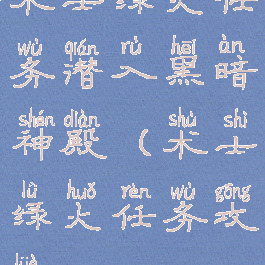 术士绿火任
wù qián rù hēi àn
务潜入黑暗
shén diàn shù shì
神殿（术士
lǜ huǒ rèn wù gōng
绿火任务攻
lüè